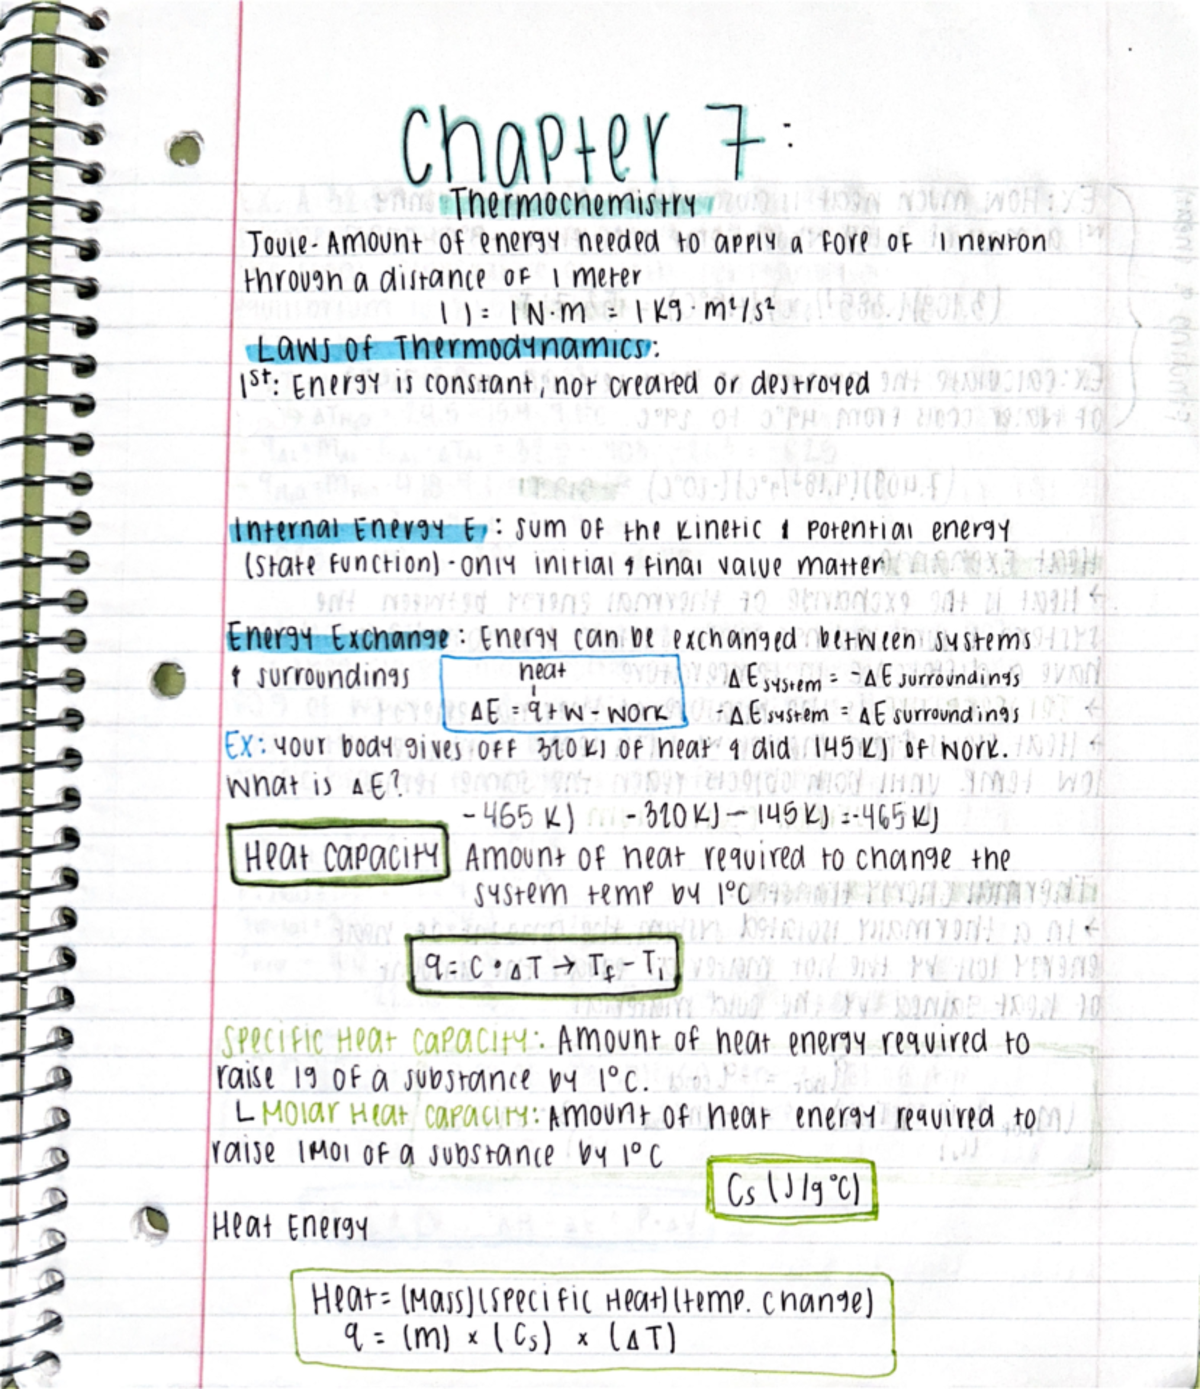 Chapter 7:
Thermochemistry
Joule- Amount of energy needed to apply a fore of 1 newton
through a distance of 1 meter
1 J = 1 N·m = 1 kg·m²/s²
Laws of Thermodynamics:
1st: Energy is constant, not created or destroyed
Internal Energy E: sum of the kinetic & potential energy
(state function) - only initial & final value matter
Energy Exchange: Energy can be exchanged between systems
& surroundings
heat
ΔE = q + w - work
ΔE system = -ΔE surroundings
-ΔE system = ΔE surroundings
Ex: your body gives off 320 kJ of heat & did 145 kJ of work.
What is ΔE?
-465 kJ -320 kJ - 145 kJ = -465 kJ
Heat Capacity Amount of heat required to change the
system temp by 1°C
q = C • ΔT → Tf - Ti
Specific Heat Capacity: Amount of heat energy required to
raise 1g of a substance by 1°C.
L Molar Heat Capacity: Amount of heat energy required to
raise 1 mol of a substance by 1°C
Cs (J/g°C)
Heat Energy
Heat = (Mass)(Specific Heat)(temp. change)
q = (m) × (Cs) × (ΔT)